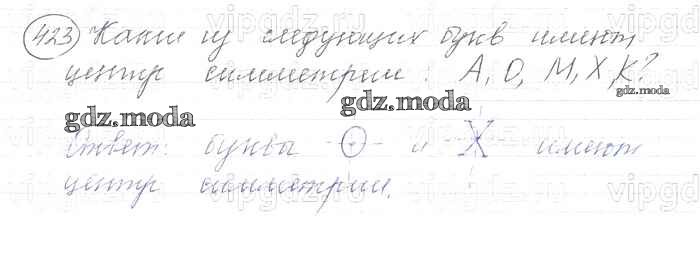 vipgdz.ru vipgdz.ru
423 Какие из следующих букв имеют
центр симметрии: А, О, М, Х, К?
gdz.moda gdz.moda gdz.moda
Ответ: буква О и Х имеют
центр симметрии.
vipgdz.ru vipgdz.ru